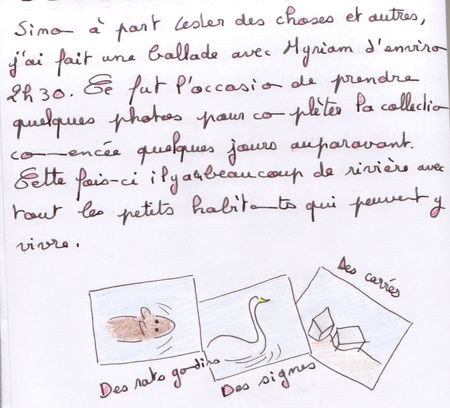 Sinon à part tester des choses et autres,
j'ai fait une ballade avec Myriam d'environ
2h30. Ce fut l'occasion de prendre
quelques photos pour complèter la collection
commencée quelques jours auparavant.
Cette fois-ci il y a beaucoup de rivière avec
tout les petits habitants qui peuvent y
vivre.
Des carrés
Des rats gondins
Des signes